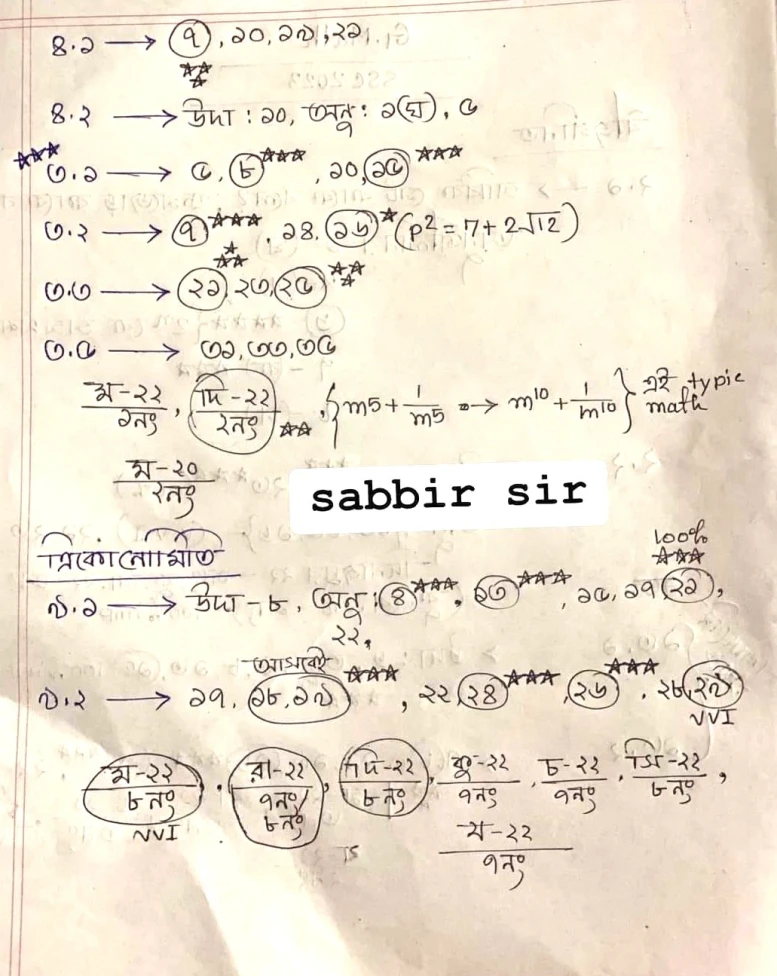 ৪.১ → ৭, ১০, ১৯, ২১
৪.২ → উদা : ১০, অনু : ১(ঘ), ৫
৩.১ → ৫, ৮, ১০, ১৫
৩.২ → ৭, ১৪, ১৬ (p² = 7 + 2√12)
৩.৩ → ২১, ২৩, ২৫
৩.৫ → ৩১, ৩৩, ৩৫
ম-২২/২নং, দি-২২/২নং, {m5 + 1/m5 → m¹⁰ + 1/m¹⁰} এই typic math
ম-২০/২নং
sabbir sir
ত্রিকোনোমিতি
100%
৯.১ → উদা - ৮, অনু : ৪, ১৩, ১৫, ১৭, ২১,
২২,
আসবেই
৯.২ → ১৭, ১৮, ১৯, ২২, ২৪, ২৬, ২৮, ২৯
NVI
ম-২২/৮নং, রা-২২/৭নং/৮নং, দি-২২/৮নং, কু-২২/৭নং, চ-২২/৭নং, সি-২২/৮নং,
NVI
য-২২/৭নং